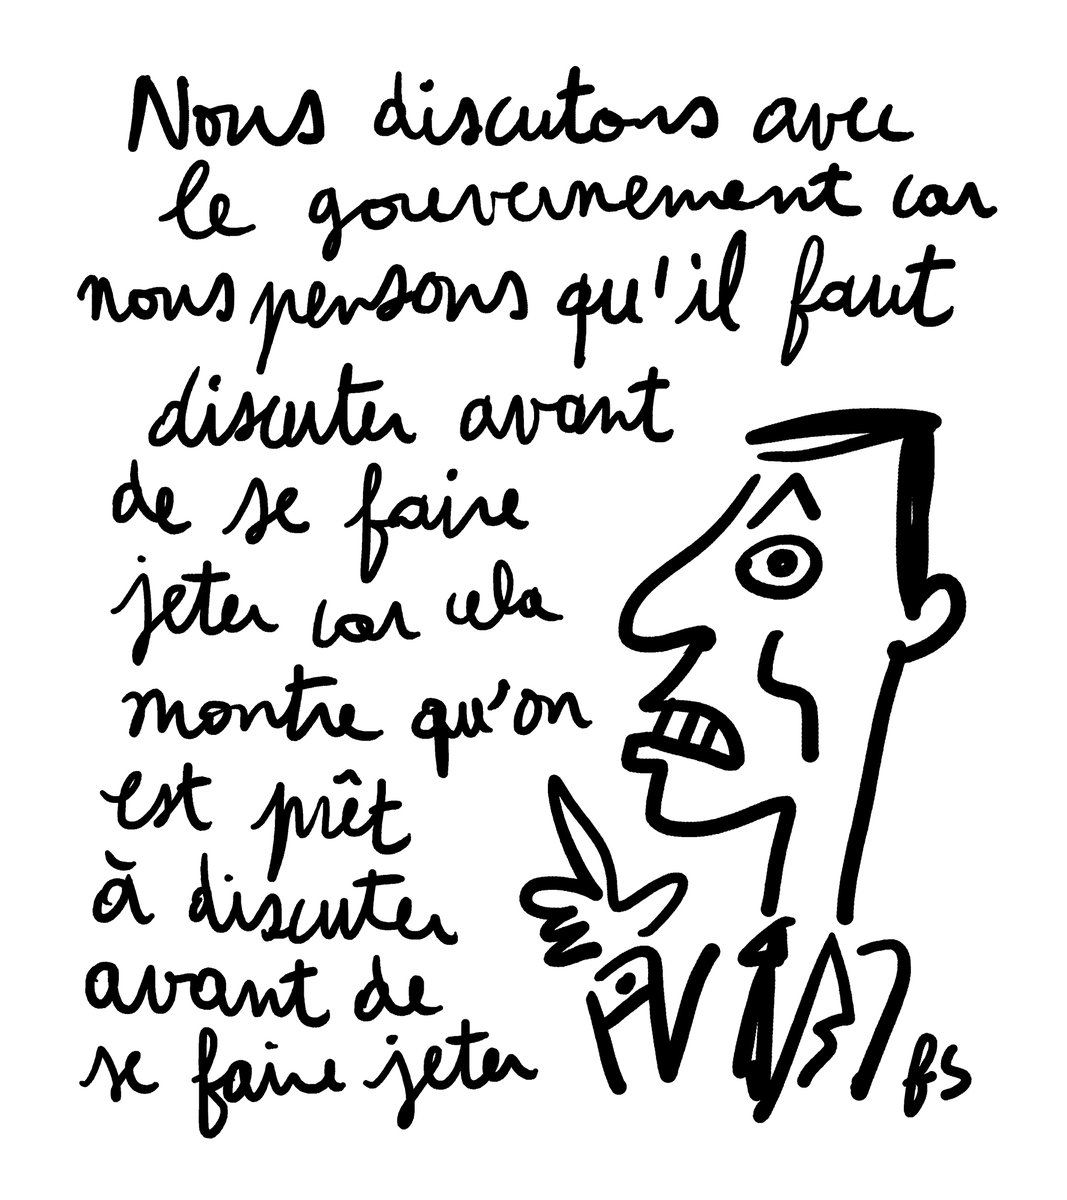 Nous discutons avec
le gouvernement car
nous pensons qu'il faut
discuter avant
de se faire
jeter car cela
montre qu'on
est prêt
à discuter
avant de
se faire jeter
fs